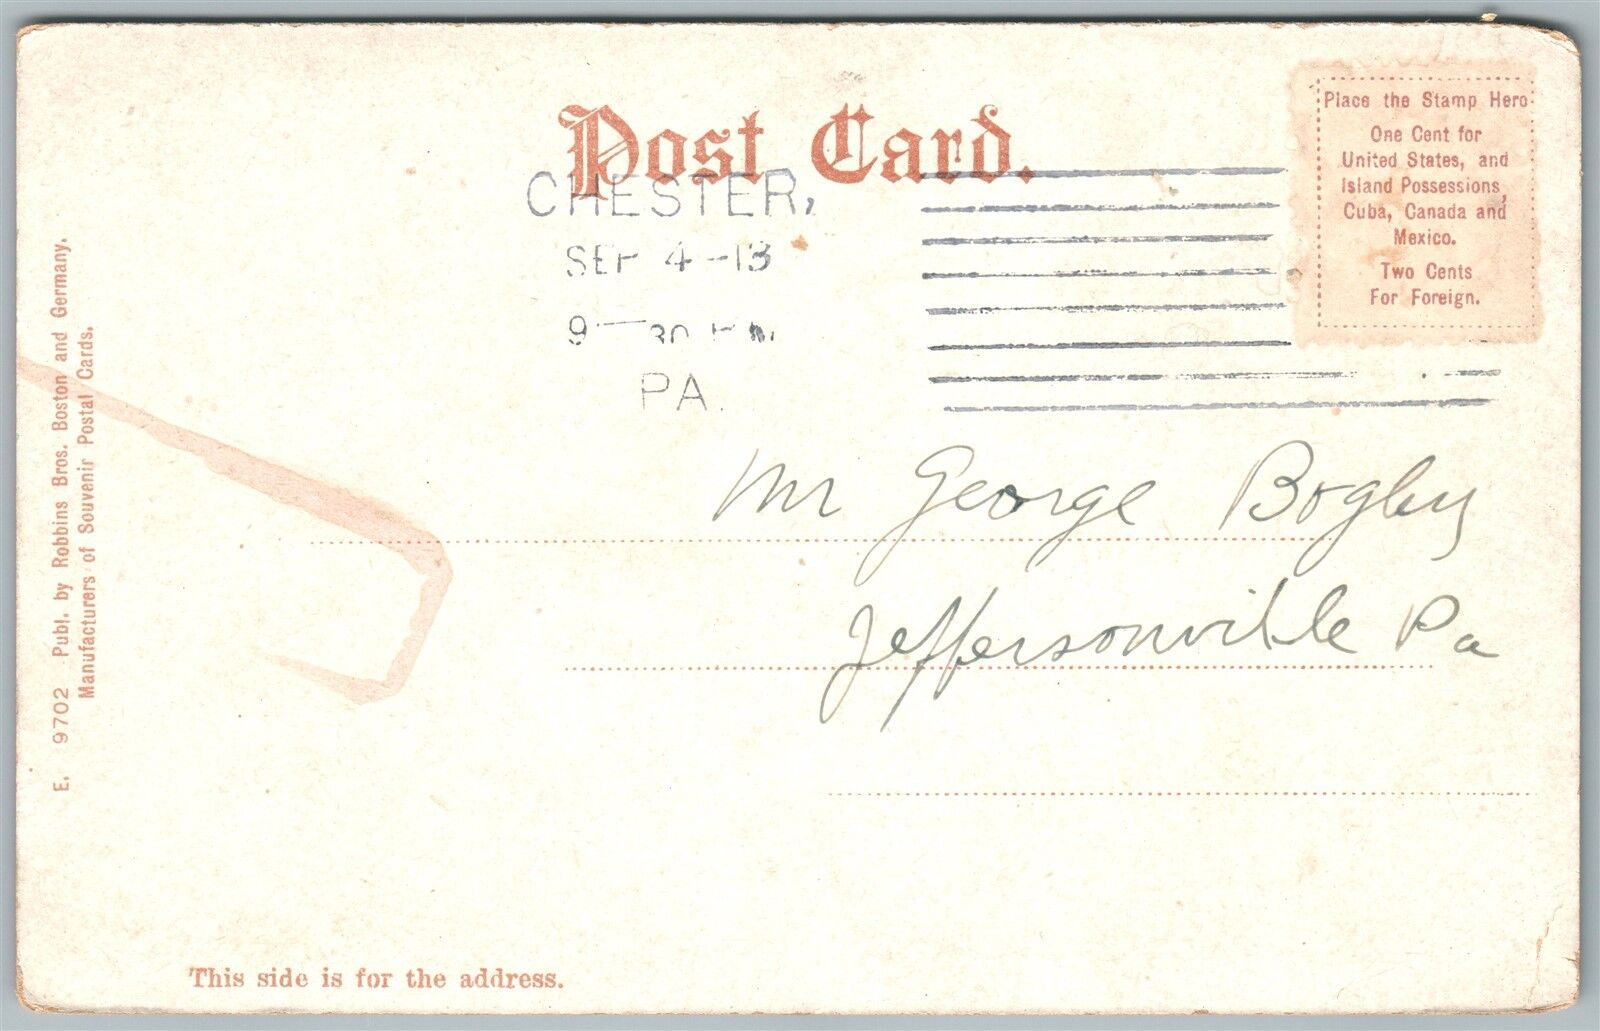 Post Card.
CHESTER,
SEP 4-13
9-30
PA.
Place the Stamp Here
One Cent for
United States, and
Island Possessions,
Cuba, Canada and
Mexico.
Two Cents
For Foreign.
Mr George Bogley
Jeffersonville Pa
E. 9702 Publ. by Robbins Bros. Boston and Germany.
Manufacturers of Souvenir Postal Cards.
This side is for the address.